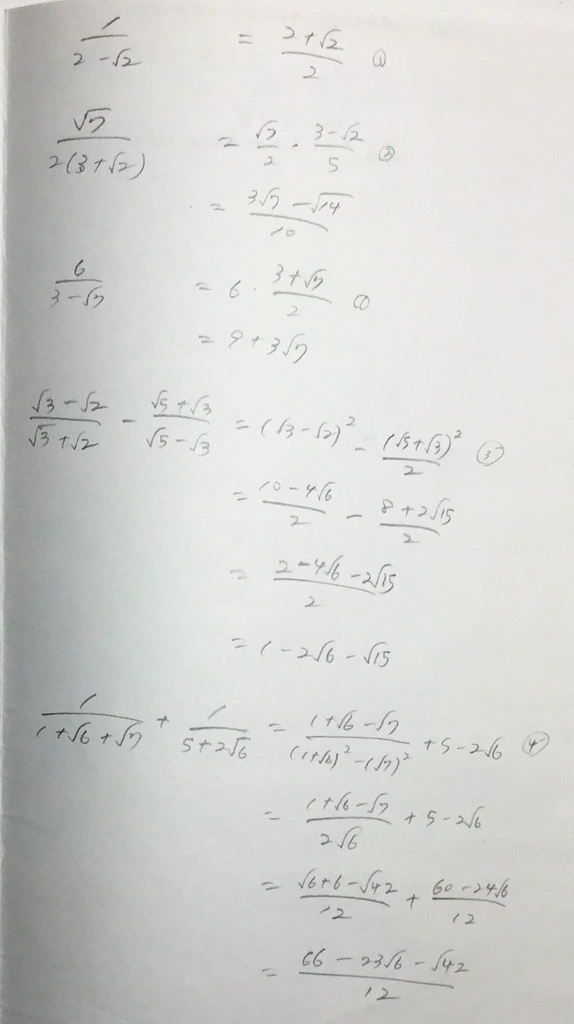 1/(2-√2) = (2+√2)/2 ①
√7/(2(3+√2)) = √7/2 · (3-√2)/7 ②
= (3√7-√14)/10
6/(3-√7) = 6 · (3+√7)/2 ①
= 9+3√7
(√3-√2)/(√3+√2) - (√5+√3)/(√5-√3) = (√3-√2)² - (√5+√3)²/2 ③
= (10-4√6)/2 - (8+2√15)/2
= (2-4√6-2√15)/2
= 1-2√6-√15
1/(1+√6+√7) + 1/(5+2√6) = (1+√6-√7)/((1+√6)²-(√7)²) + 5-2√6 ④
= (1+√6-√7)/(2√6) + 5-2√6
= (√6+6-√42)/12 + (60-24√6)/12
= (66-23√6-√42)/12